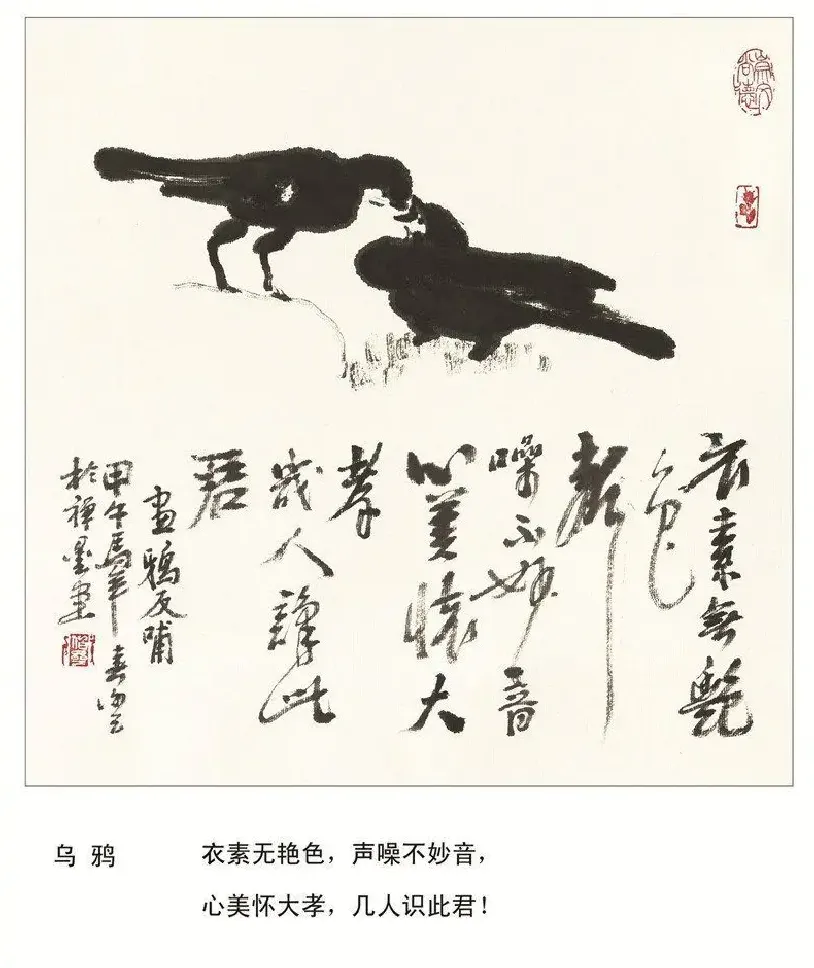 崇文尚德
衣素無艷
色
聲
噪不妙音
心美懷大
孝
幾人識此
君
畫鴉反哺
甲午馬年春
於禪墨畫
乌鸦
衣素无艳色，声噪不妙音，
心美怀大孝，几人识此君！